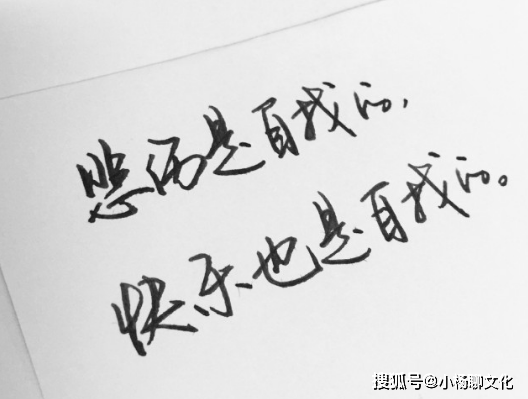 悲伤是自找的,
快乐也是自找的。
搜狐号@小杨聊文化